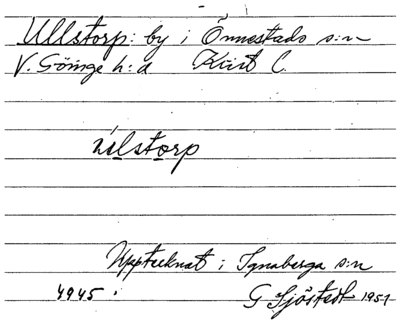 Ullstorp: by i Önnestads s:n
V. Göinge h:d Krist C.
úlstorp
Upptecknat i Ignaberga s:n
4945. G Sjöstedt 1951